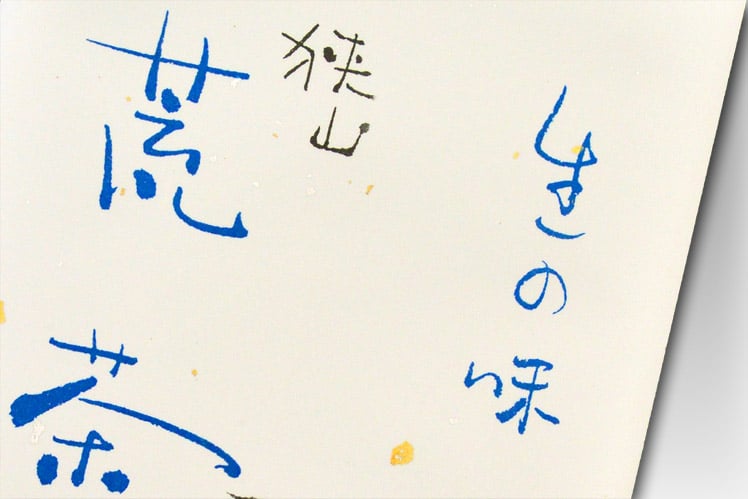 生の味
狭山
荒茶